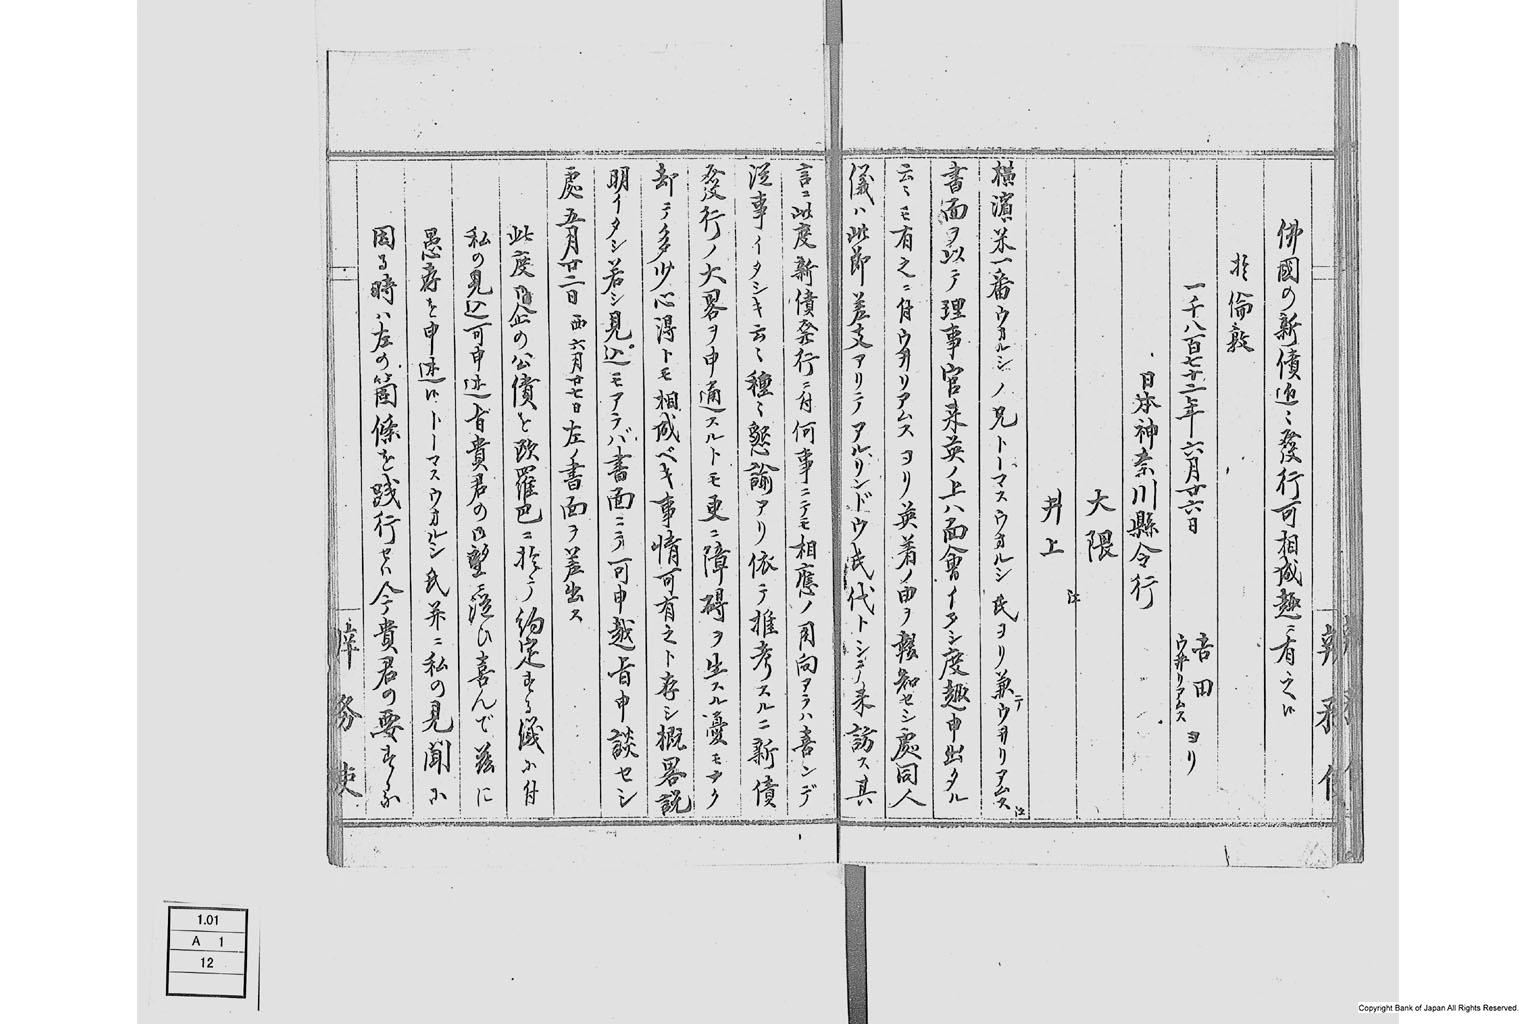 佛國の新債近々發行可相成趣ニ有之候
於倫敦
一千八百七十二年六月廿六日
吉田
ウ井リアムス ヨリ
日本神奈川縣令行
大隈
井上 江
横濱米一番ウオルシノ兄トーマスウオルシ氏ヨリ兼テウ井リアムス江
書面ヲ以テ理事官来英ノ上ハ面會イタシ度趣申出タル
云々モ有之ニ付ウ井リアムスヨリ英着ノ由ヲ報知セシ處同人
儀ハ此節差支アリテアルリンドウ氏代トシテ来訪ス其
言ニ此度新債發行ニ付何事ニテモ相應ノ用向アラハ喜ンデ
従事イタシキ云々種々懇諭アリ依テ推考スルニ新債
發行ノ大畧ヲ申通スルトモ更ニ障碍ヲ生スル憂モナク
却テ多少心得トモ相成ベキ事情可有之ト存シ概畧説
明イタシ若シ見込モアラバ書面ニテ可申越旨申談セシ
處五月廿二日西六月廿七日左ノ書面ヲ差出ス
此度御企の公債を歐羅巴ニ於テ約定する儀ニ付
私の見込可申述旨貴君の御望ニ隨ひ喜んで茲に
愚存を申述候トーマスウオルシ氏并ニ私の見聞ニ
因る時ハ左の箇條を践行せハ今貴君の要する
辨務使
辨務使
1.01
A 1
12
Copyright Bank of Japan All Rights Reserved.